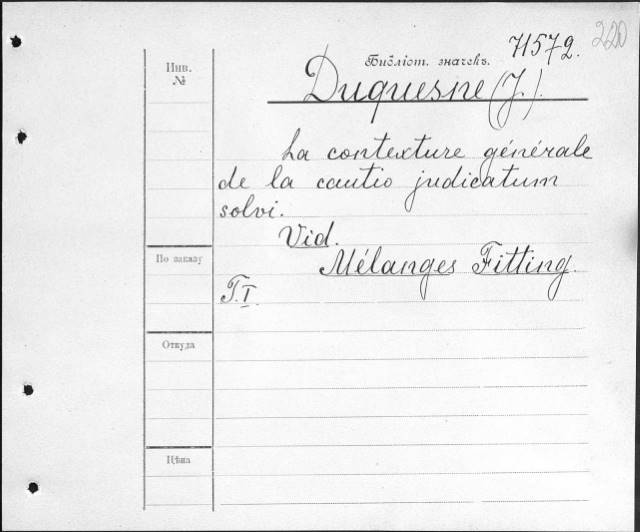 220
71572.
Инв.
№
Библіот. значекъ.
Duquesne (J.).
La contexture générale
de la cautio judicatum
solvi.
Vid.
Mélanges Fitting.
T. I.
По заказу
Откуда
Цѣна